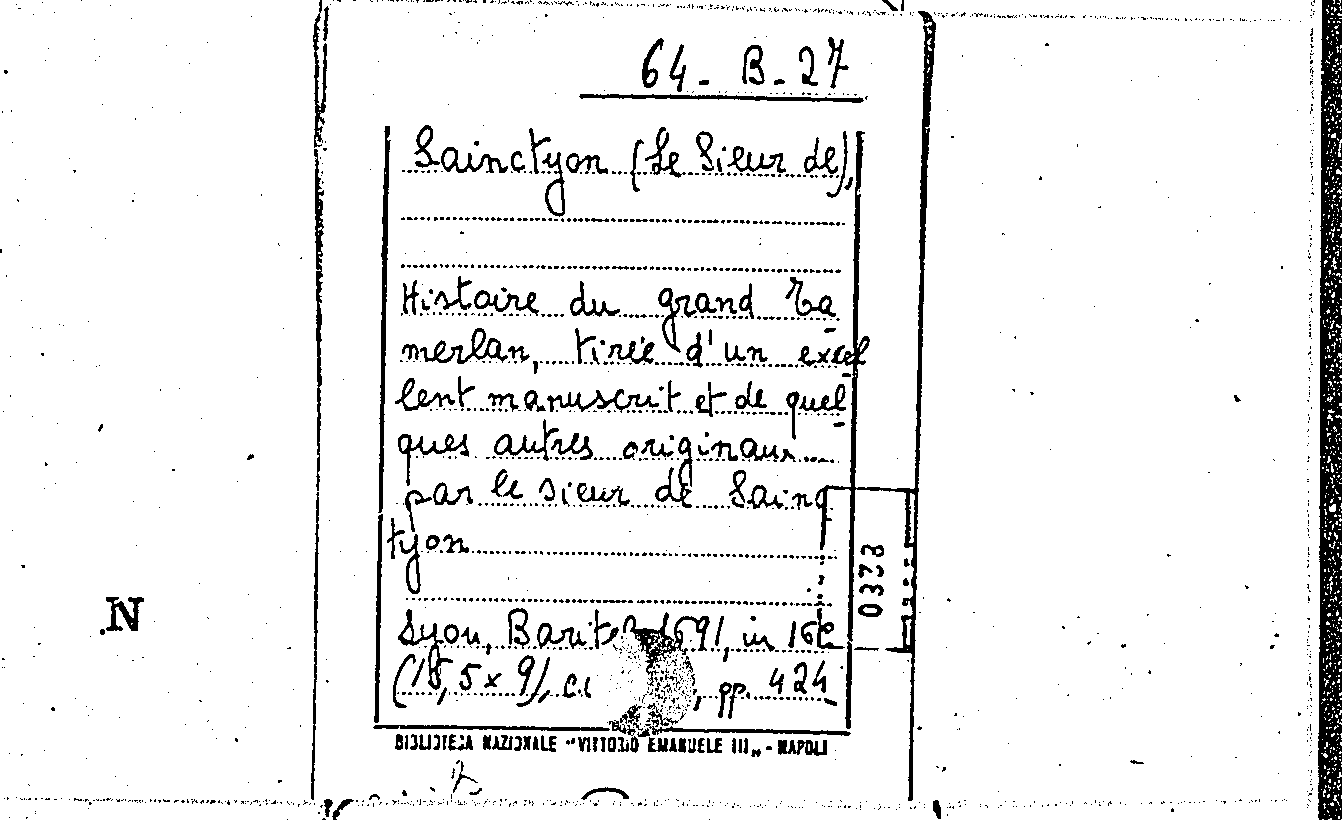 64- B-27
Sainctyon (Le Sieur de),
Histoire du grand Ta
merlan, tirée d'un excel
lent manuscrit et de quel
ques autres originaux...
par le sieur de Sainc
tyon
N
0373
Lyon, Baritel 1691, in 16º
(15,5 x 9), , pp. 424
BIBLIOTECA NAZIONALE "VITTORIO EMANUELE III" - NAPOLI